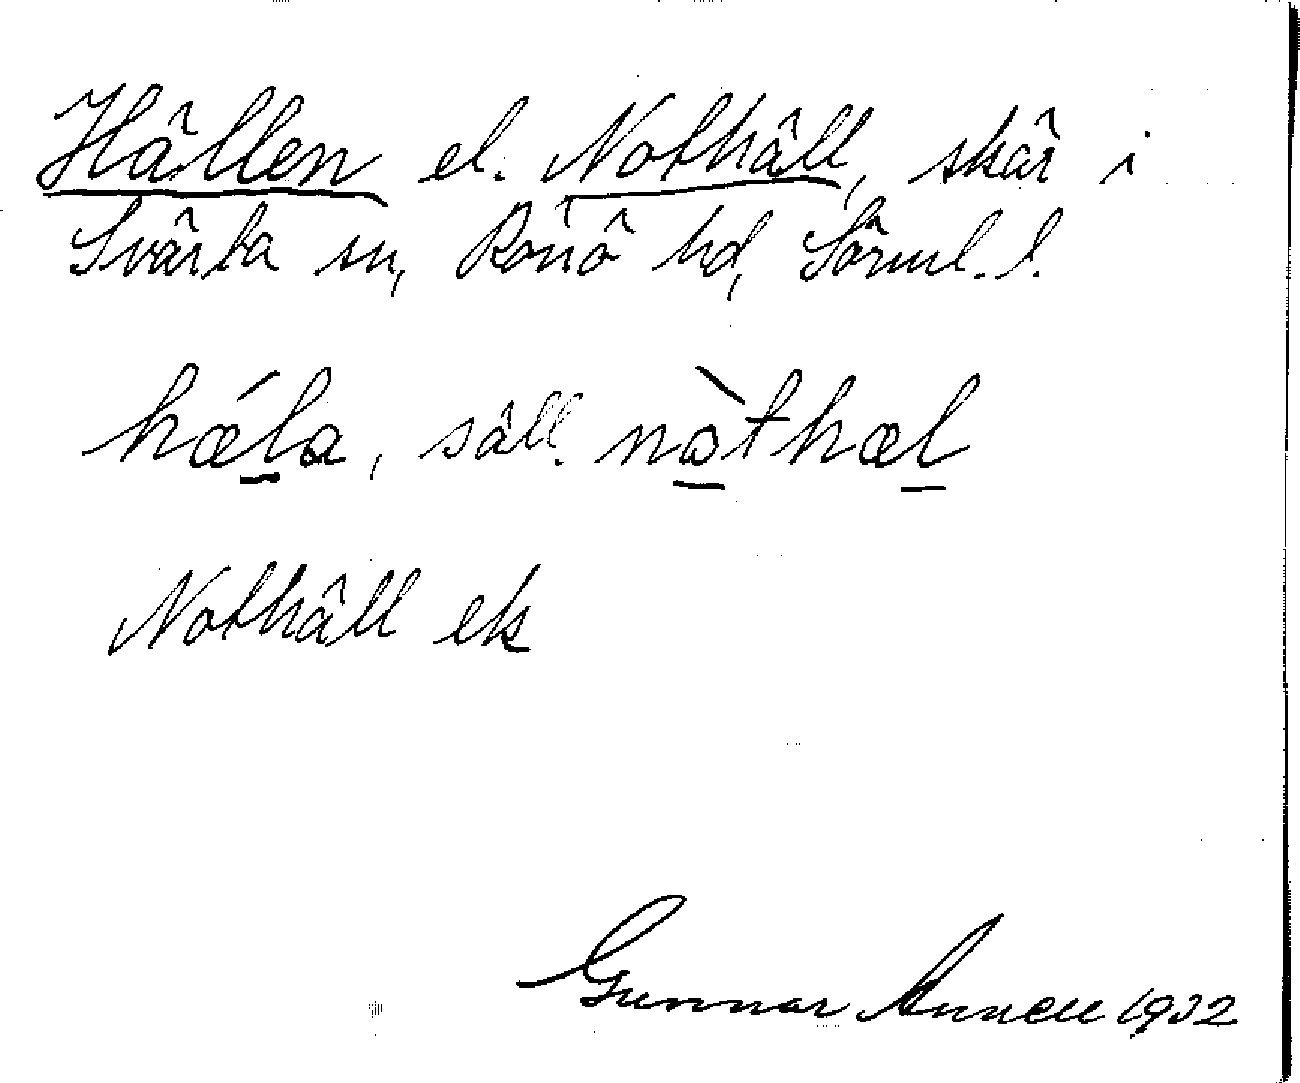 Hällen el. Nothäll, skär i
Svärta sn, Rönö hd, Sörml. l.
hǽla, säll. nòthæl
Nothäll ek
Gunnar Annell 1932